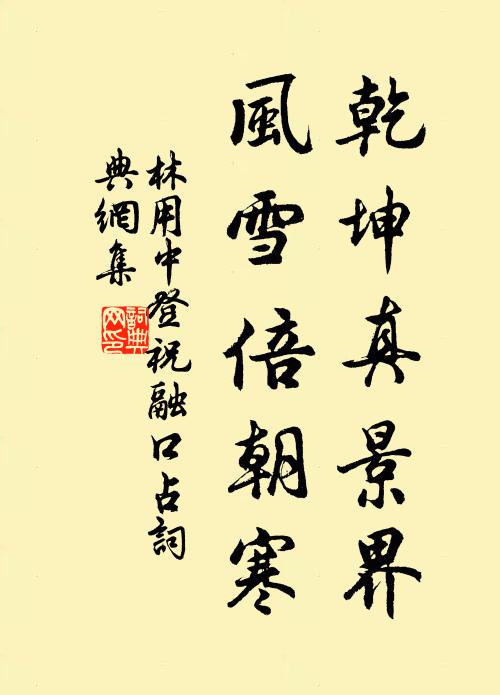 乾坤真景界
風雪倍朝寒
林用中登祝融口占詞
典網集
詞典
网印